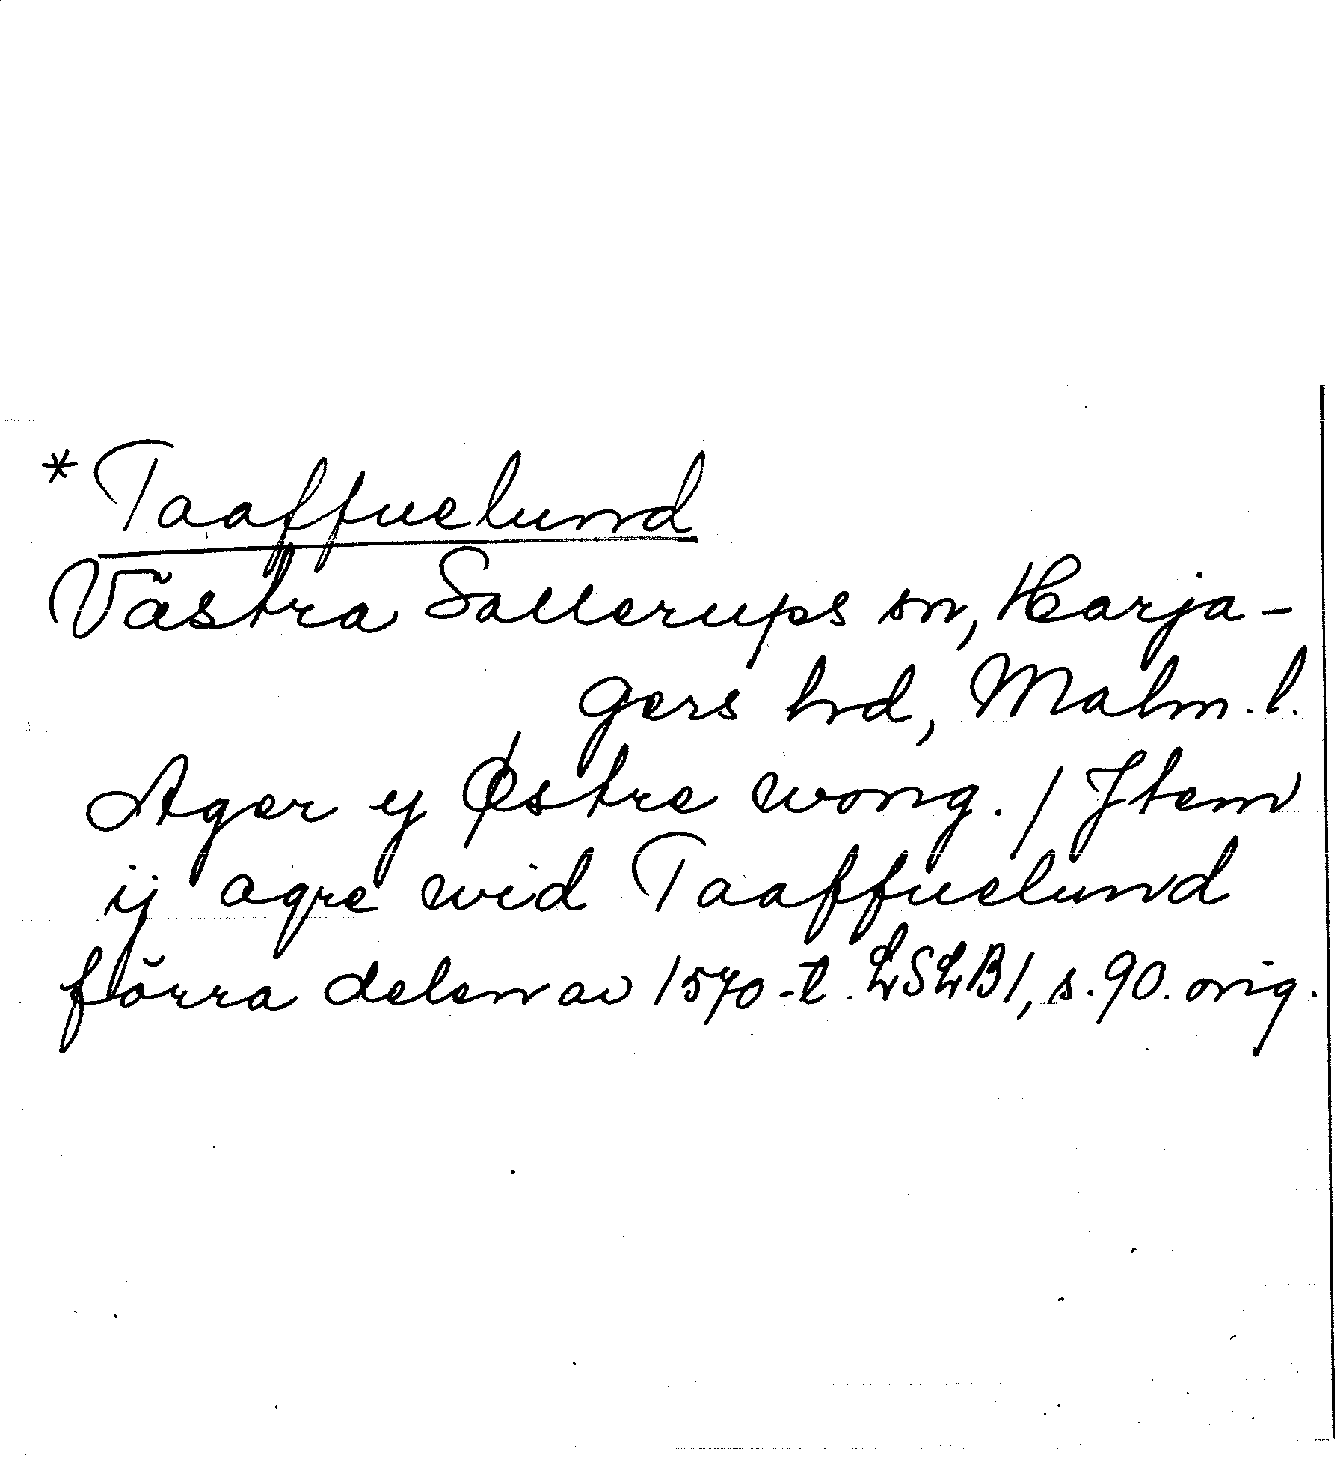 *Taaffuelund
Västra Sallerups sn, Harja-
gers hd, Malm. l.
Ager y Østre wong. / Jtem
ij agre wid Taaffuelund
förra delen av 1570-t. LSLB1, s. 90. orig.